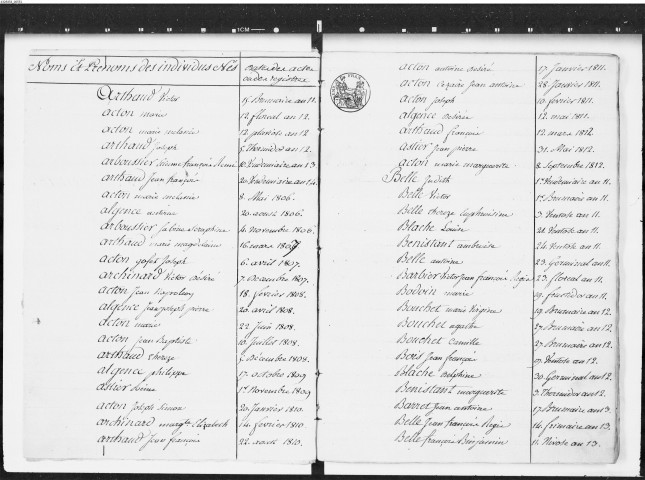 Noms Et Prénoms des individus Nés
Date des actes
ou des registres
Arthaud Victor 15 Brumaire an 11.
acton marie 12 floreal an 12.
acton marie melanie 12 an 12
arthaud Joseph 5 Thermidor an 12.
arboussier françois Vendemiaire an 13
arthaud Jean françois 20 Vendemiaire an 14.
acton marie melanie 8 Mai 1806.
algence 20 aout 1806.
arboussier Sabine Seraphine 4 Novembre 1806.
arthaud marie magdelaine 16 mars 1807
acton Joseph 6 avril 1807.
archinard Victor désiré 7 Decembre 1807.
acton Jean 18 fevrier 1808.
algence Jean Joseph pierre 20 avril 1808.
acton marie 22 Juin 1808.
acton Jean Baptiste 10 Juillet 1808.
arthaud therese 5 Decembre 1808.
algence philippe 17 octobre 1809
astier 1er Novembre 1809
acton Joseph Simon 20 Janvier 1810.
archinard margte Elizabeth 14 fevrier 1810
arthaud Jean françois 22 aout 1810.
acton antoine désiré 17 Janvier 1811.
acton Cezaire Jean antoine 28 Janvier 1811.
acton Joseph 10 fevrier 1811.
algence désirée 12 mai 1811.
arthaud françois 12 mars 1812
astier Jean pierre 31 Mai 1812.
acton marie marguerite 8 Septembre 1812.
Belle Judith 1er Vendemiaire an 11.
Belle Victor 1er Brumaire an 11.
Belle therese Euphrosine 3 Ventose an 11.
Blache Louise 21 Ventose an 11.
Benistant ambroise 24 Ventose an 11.
Belle antoine 23 Germinal an 11.
Barbier Victor Jean françois Regis 23 floreal an 11.
Bodoin marie 19 fructidor an 11.
Bouchet marie Virginie 19 Brumaire an 12.
Bouchet agathe 27 Brumaire an 12.
Bouchet Camille 27 Brumaire an 12.
Bois Jean françois Ventose an 12.
Blache Delphine 30 Germinal an 12.
Benistant marguerite 3 Thermidor an 12.
Barret Jean antoine 17 Brumaire an 13.
Belle Jean françois Regis 14 frimaire an 13.
Belle françois Benjamin 11 Nivose an 13.